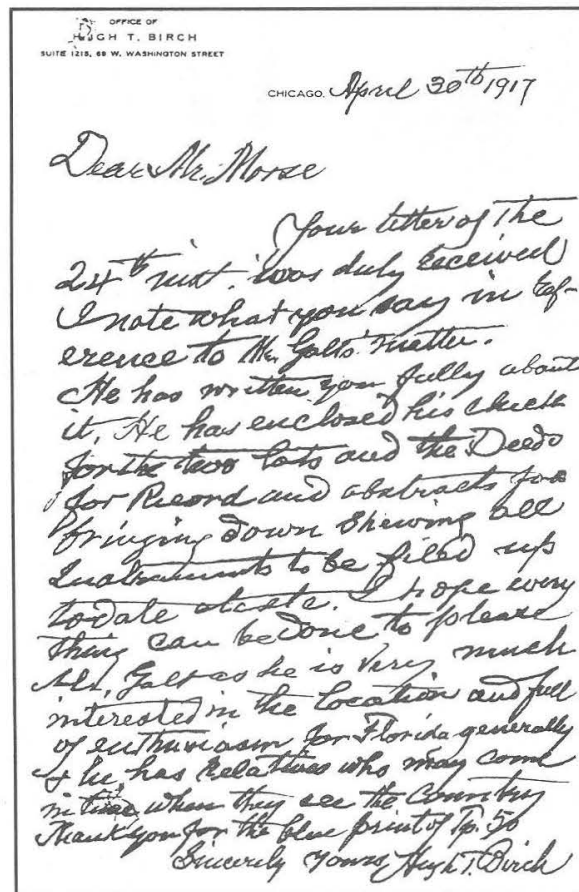 OFFICE OF
HUGH T. BIRCH
SUITE 1215, 69 W. WASHINGTON STREET
CHICAGO. April 30th 1917
Dear Mr. Morse
Your letter of The
24th inst. was duly received
I note what you say in ref-
erence to Mr. Galts' matter.
He has written you fully about
it, He has enclosed his check
for the two lots and the Deeds
for Record and abstracts for
bringing down Shewing all
Instruments to be filed up
to date etc. I hope every
thing can be done to please
Mr. Galt as he is Very much
interested in the Location and full
of enthusiasm for Florida generally
& he has Relatives who may come
in time when they see the Country
Thank you for the blue print of Tp. 50
Sincerely Yours, Hugh T. Birch